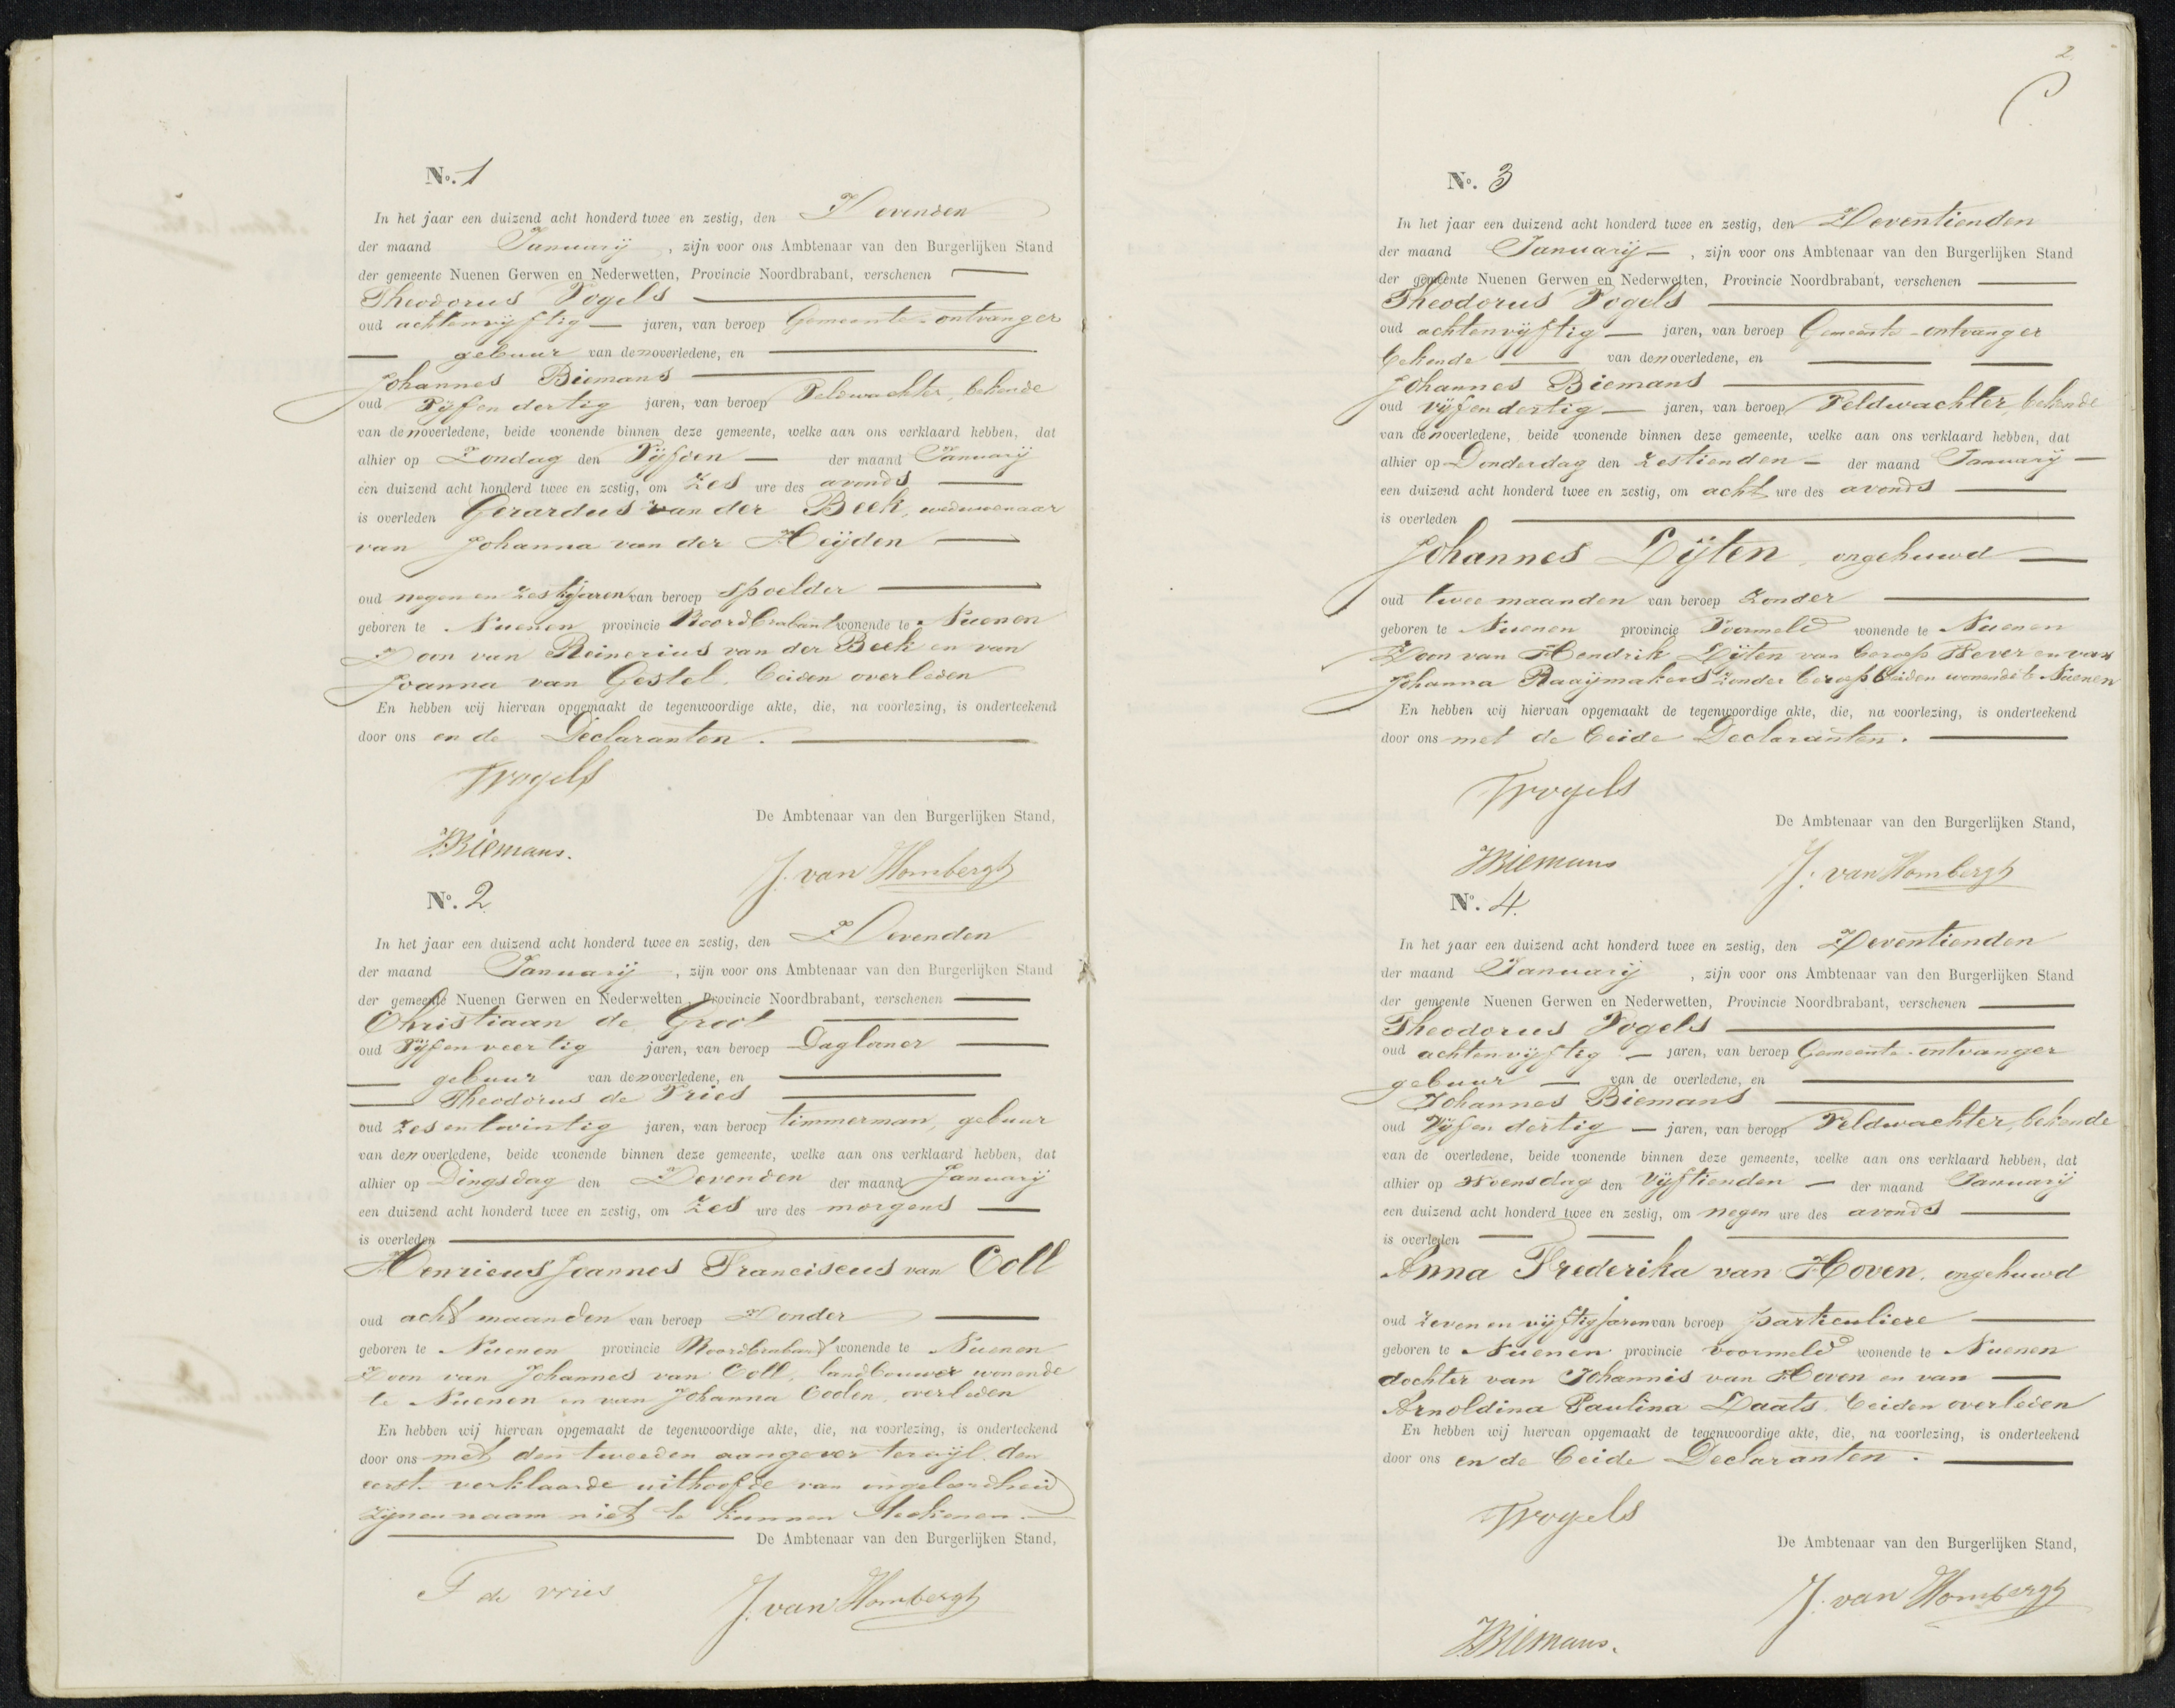 N°. 1
In het jaar een duizend acht honderd twee en zestig, den Zevenden
der maand Januarij, zijn voor ons Ambtenaar van den Burgerlijken Stand
der gemeente Nuenen Gerwen en Nederwetten, Provincie Noordbrabant, verschenen
Theodorus Vogels
oud achtenvijftig jaren, van beroep Gemeente-ontvanger
gebuur van den overledene, en
Johannes Biemans
oud Vijfendertig jaren, van beroep Veldwachter, bekende
van den overledene, beide wonende binnen deze gemeente, welke aan ons verklaard hebben, dat
alhier op Zondag den Vijfden der maand Januarij
een duizend acht honderd twee en zestig, om zes ure des avonds
is overleden Gerardus van der Beek, weduwenaar
van Johanna van der Heijden
oud negen en zestig jaren van beroep spoelder
geboren te Nuenen provincie Noordbrabant wonende te Nuenen
Zoon van Reinerius van der Beek en van
Joanna van Gestel, beiden overleden
En hebben wij hiervan opgemaakt de tegenwoordige akte, die, na voorlezing, is onderteekend
door ons en de Declaranten.
TVogels
De Ambtenaar van den Burgerlijken Stand,
JBiemans.
J. van Hombergh
N°. 2
In het jaar een duizend acht honderd twee en zestig, den Zevenden
der maand Januarij, zijn voor ons Ambtenaar van den Burgerlijken Stand
der gemeente Nuenen Gerwen en Nederwetten, Provincie Noordbrabant, verschenen
Christiaan de Groot
oud Vijfenveertig jaren, van beroep Dagloner
gebuur van den overledene, en
Theodorus de Vries
oud zesentwintig jaren, van beroep timmerman, gebuur
van den overledene, beide wonende binnen deze gemeente, welke aan ons verklaard hebben, dat
alhier op Dingsdag den Zevenden der maand Januarij
een duizend acht honderd twee en zestig, om zes ure des morgens
is overleden
Henricus Joannes Franciscus van Coll
oud acht maanden van beroep Zonder
geboren te Nuenen provincie Noordbrabant wonende te Nuenen
Zoon van Johannes van Coll, landbouwer wonende
te Nuenen en van Johanna Coolen, overleden
En hebben wij hiervan opgemaakt de tegenwoordige akte, die, na voorlezing, is onderteekend
door ons met den tweeden aangever terwijl den
eerst verklaarde uithoofde van ongeleerdheid
zijnen naam niet te kunnen teekenen.
De Ambtenaar van den Burgerlijken Stand,
T de vries
J. van Hombergh
2
N°. 3
In het jaar een duizend acht honderd twee en zestig, den Zeventienden
der maand Januarij, zijn voor ons Ambtenaar van den Burgerlijken Stand
der gemeente Nuenen Gerwen en Nederwetten, Provincie Noordbrabant, verschenen
Theodorus Vogels
oud achtenvijftig jaren, van beroep Gemeente-ontvanger
bekende van den overledene, en
Johannes Biemans
oud vijfendertig jaren, van beroep Veldwachter, bekende
van den overledene, beide wonende binnen deze gemeente, welke aan ons verklaard hebben, dat
alhier op Donderdag den zestienden der maand Januarij
een duizend acht honderd twee en zestig, om acht ure des avonds
is overleden
Johannes Lijten, ongehuwd
oud twee maanden van beroep zonder
geboren te Nuenen provincie Voormeld wonende te Nuenen
Zoon van Hendrik Lijten van beroep Wever en van
Johanna Raaijmakers zonder beroep beiden wonende te Nuenen
En hebben wij hiervan opgemaakt de tegenwoordige akte, die, na voorlezing, is onderteekend
door ons met de beide Declaranten.
TVogels
De Ambtenaar van den Burgerlijken Stand,
JBiemans
J. van Hombergh
N°. 4.
In het jaar een duizend acht honderd twee en zestig, den Zeventienden
der maand Januarij, zijn voor ons Ambtenaar van den Burgerlijken Stand
der gemeente Nuenen Gerwen en Nederwetten, Provincie Noordbrabant, verschenen
Theodorus Vogels
oud achtenvijftig jaren, van beroep Gemeente-ontvanger
gebuur van de overledene, en
Johannes Biemans
oud Vijfendertig jaren, van beroep Veldwachter, bekende
van de overledene, beide wonende binnen deze gemeente, welke aan ons verklaard hebben, dat
alhier op Woensdag den Vijftienden der maand Januarij
een duizend acht honderd twee en zestig, om negen ure des avonds
is overleden
Anna Frederika van Hoven, ongehuwd
oud zeven en vijftig jaren van beroep particuliere
geboren te Nuenen provincie voormeld wonende te Nuenen
dochter van Johannis van Hoven en van
Arnoldina Paulina Daats, beiden overleden
En hebben wij hiervan opgemaakt de tegenwoordige akte, die, na voorlezing, is onderteekend
door ons en de beide Declaranten.
TVogels
De Ambtenaar van den Burgerlijken Stand,
J. van Hombergh
JBiemans.